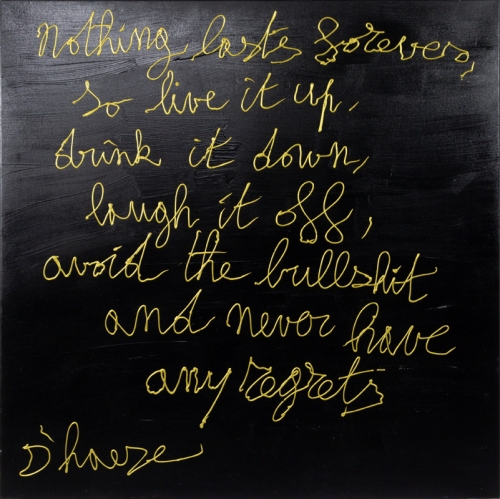 Nothing lasts forever,
so live it up,
drink it down,
laugh it off,
avoid the bullshit
and never have
any regrets
D'haese